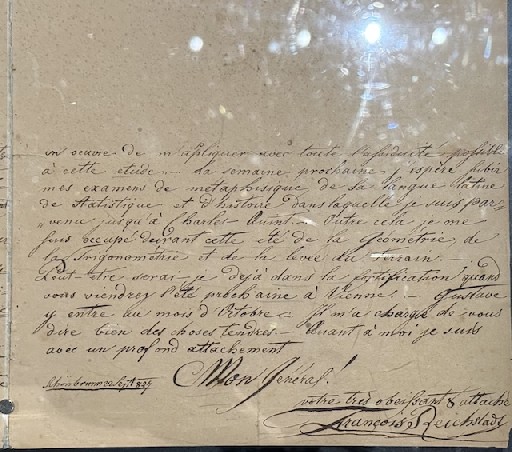 en oeuvre de m'apliquer avec toute l'assiduité possible
à cette étude. - La semaine prochaine j'espère subir
mes examens de métaphisique de la langue latine
de statistique et d'histoire dans laquelle je suis par=
=venu jusqu'à Charles Quint. Outre cela je me
suis occupé durant cette été de la Géometrie, de
la trigonométrie et de la levée du terrain. -
Peut-etre serai-je dejà dans la fortification quand
vous viendrez l'été prochaine à Vienne. - Gustave
y entre au mois d'Octobre - il m'a chargé de vous
dire bien des choses tendres - Quant à moi je suis
avec un profond attachement
Mon Général!
Schönbrunn Sept
votre très obeissant & attaché
François Reichstadt